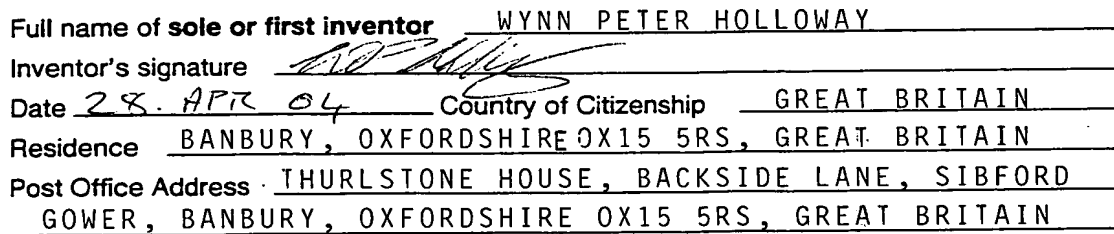 Full name of sole or first inventor WYNN PETER HOLLOWAY
Inventor's signature
Date 28. APR 04 Country of Citizenship GREAT BRITAIN
Residence BANBURY, OXFORDSHIRE OX15 5RS, GREAT BRITAIN
Post Office Address THURLSTONE HOUSE, BACKSIDE LANE, SIBFORD
GOWER, BANBURY, OXFORDSHIRE OX15 5RS, GREAT BRITAIN